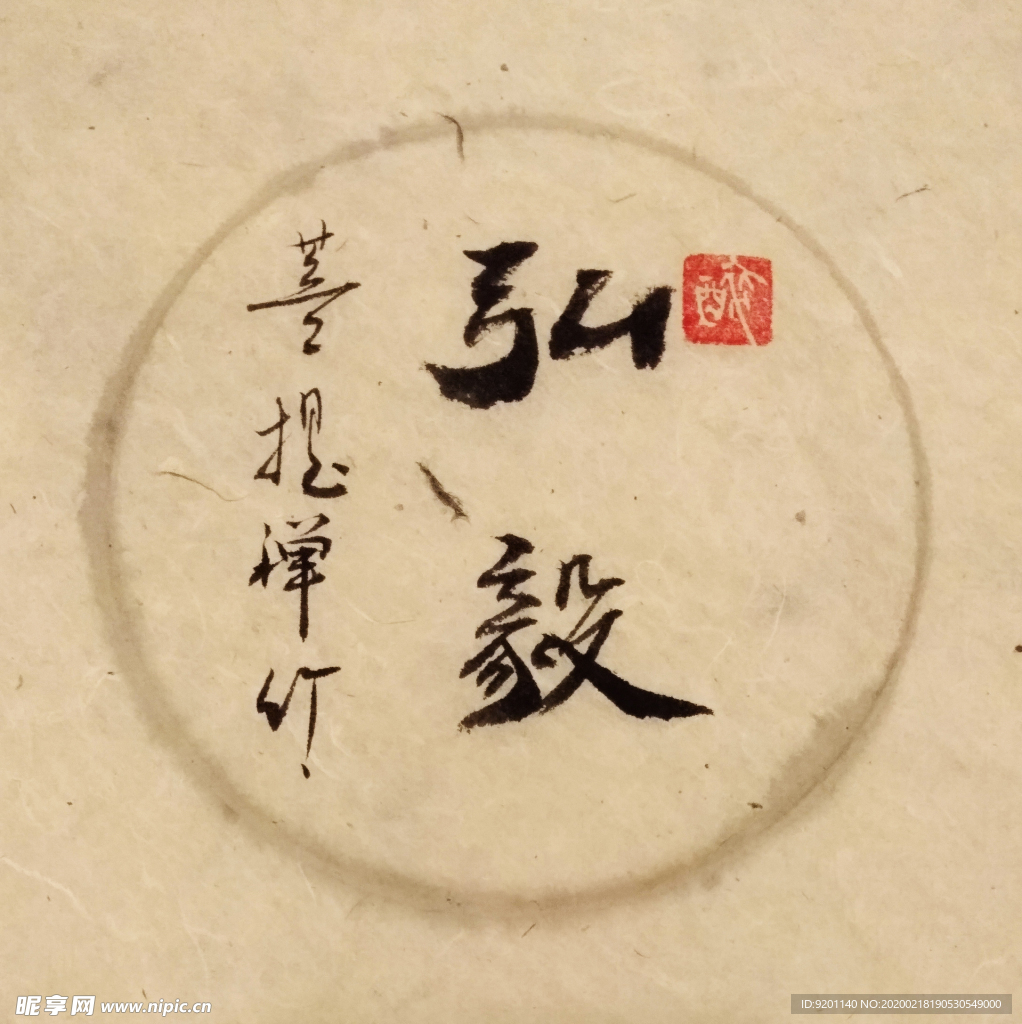 弘毅
菩提禅竹
醉
昵享网 www.nipic.cn
ID:9201140 NO:20200218190530549000